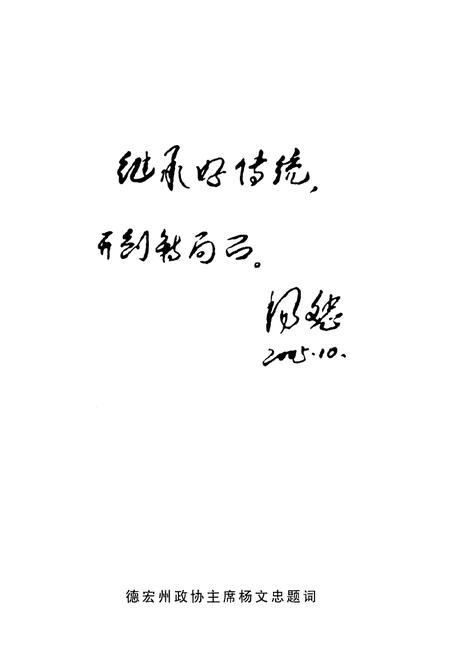 继承好传统，
开创新局面。
杨文忠
2005.10.
德宏州政协主席杨文忠题词